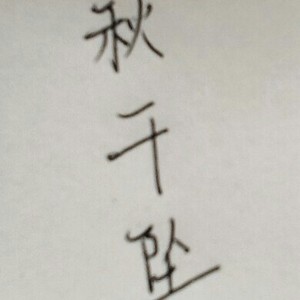 秋千坠